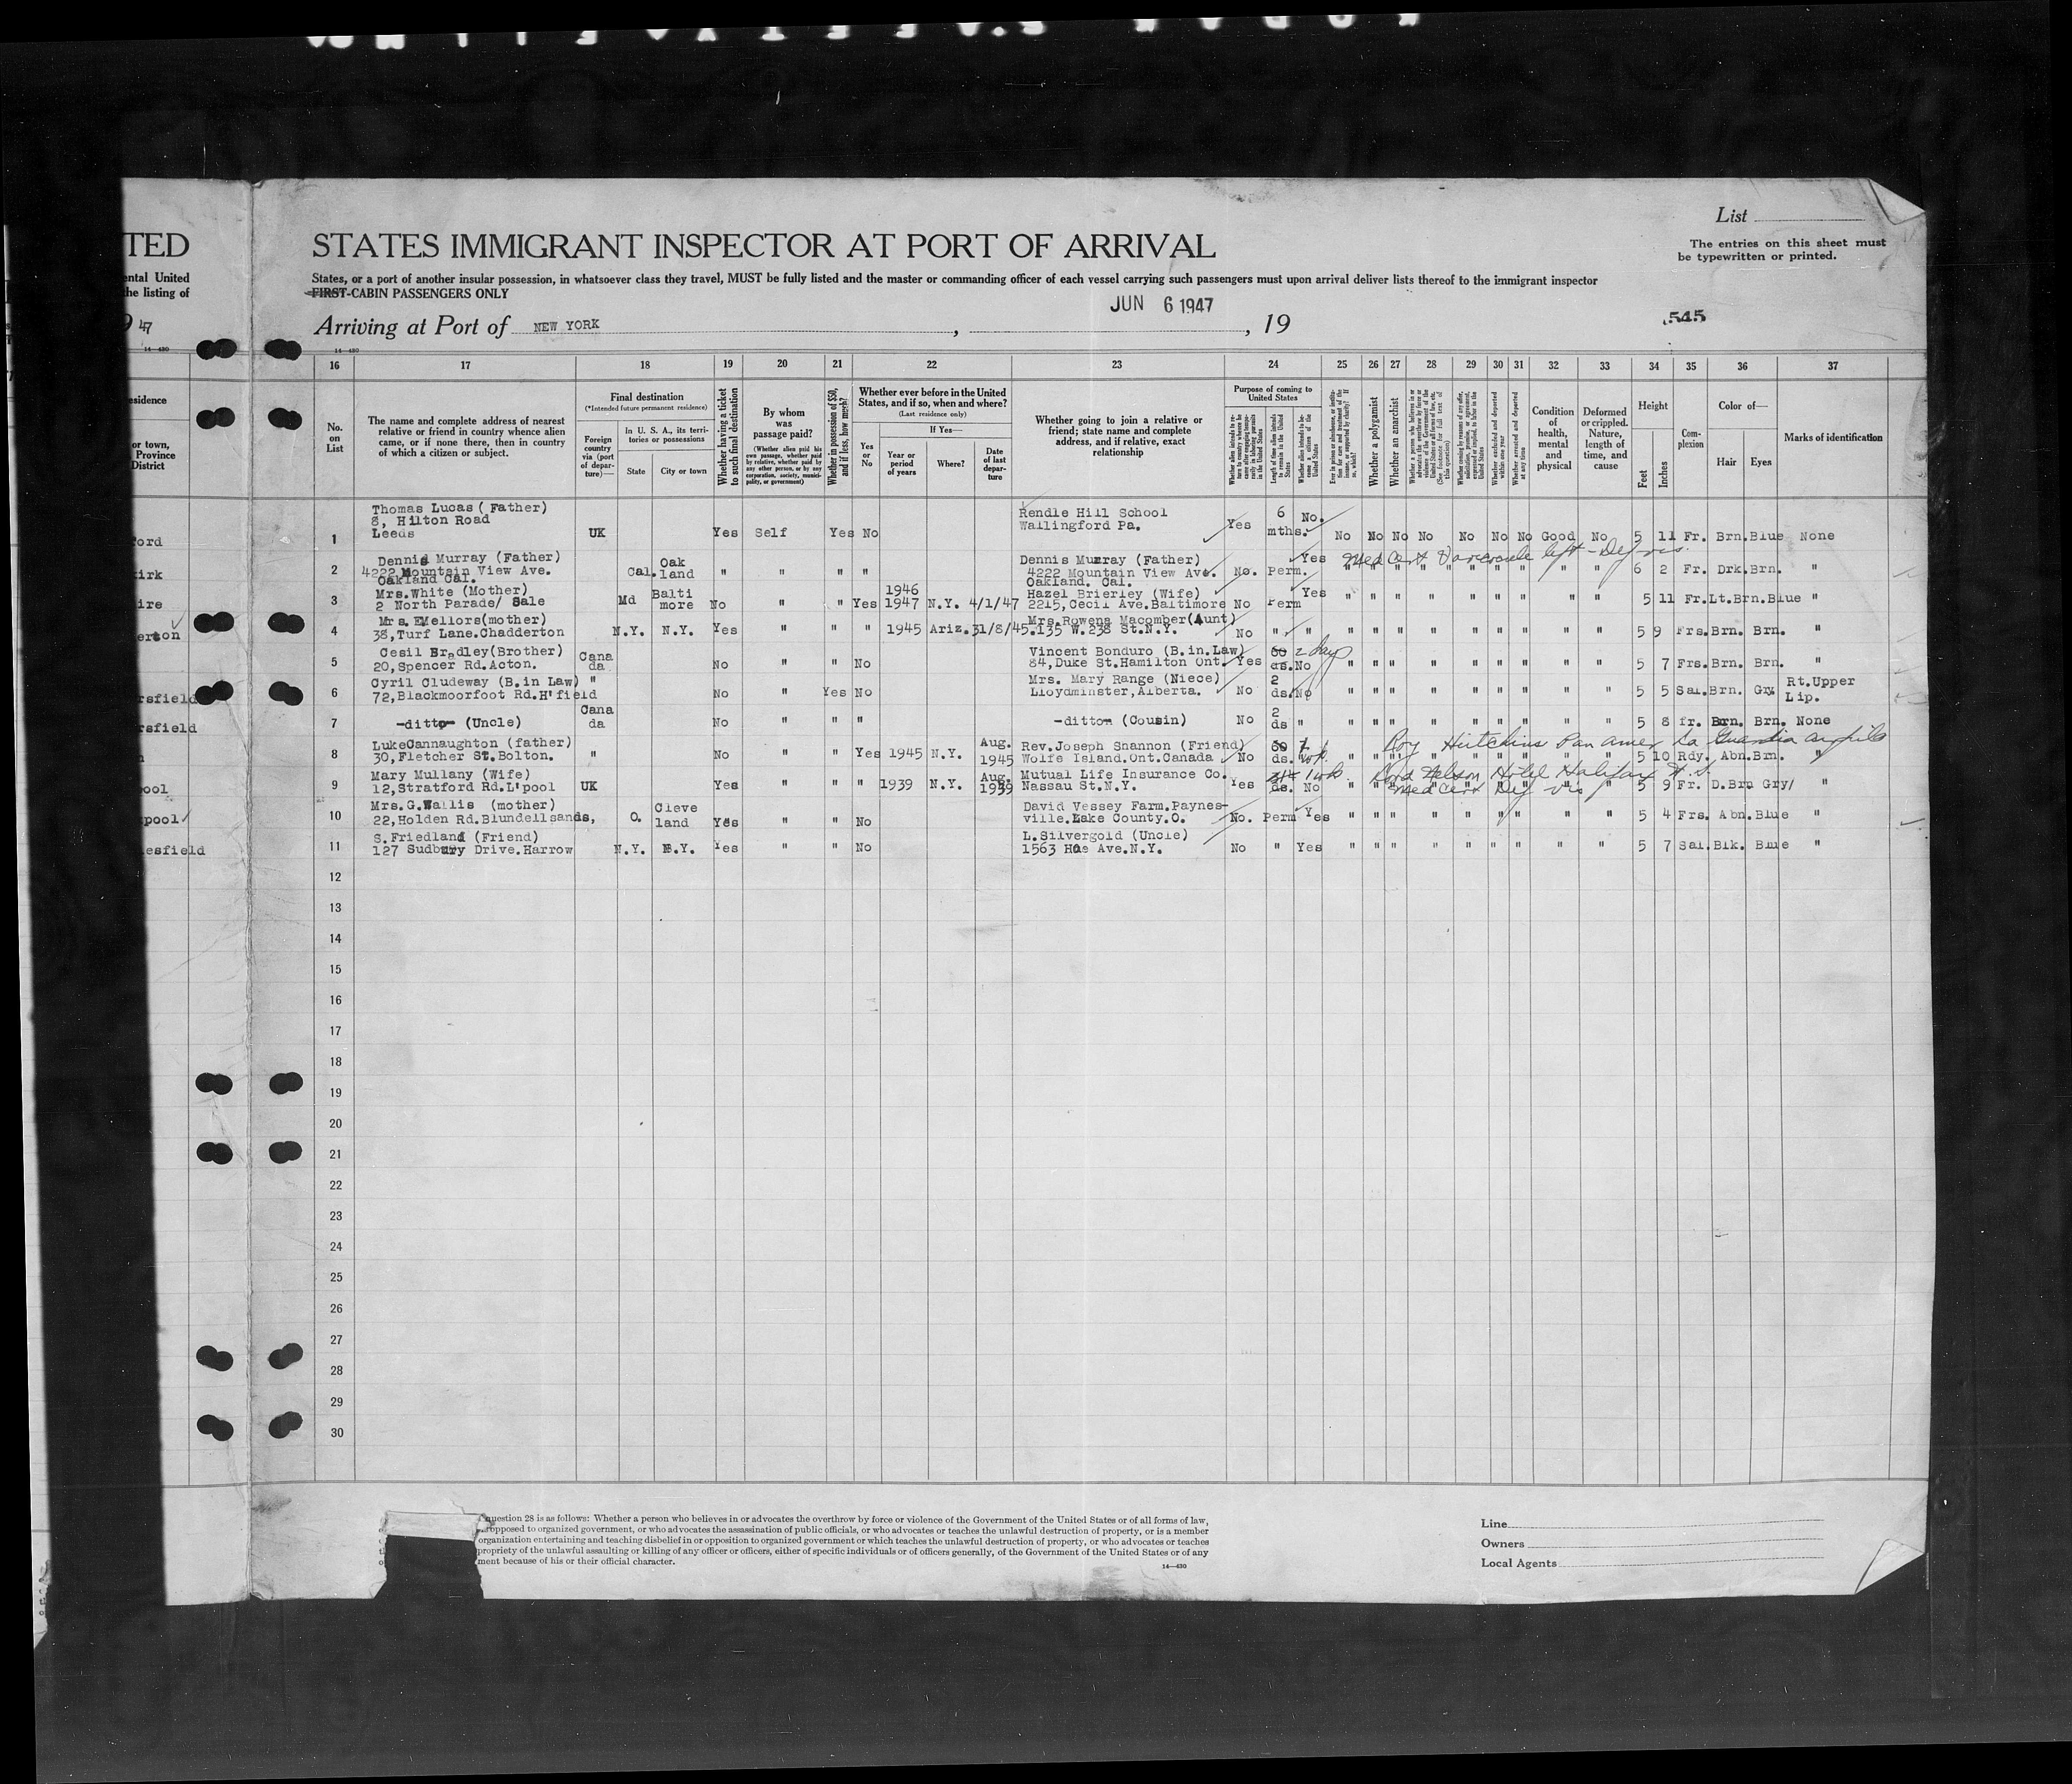 TED
ental United
the listing of
9 47
14-430
esidence
or town,
Province
District
ford
kirk
ire
erton
rsfield
rsfield
n
pool
pool
lesfield
List
STATES IMMIGRANT INSPECTOR AT PORT OF ARRIVAL
The entries on this sheet must
be typewritten or printed.
States, or a port of another insular possession, in whatsoever class they travel, MUST be fully listed and the master or commanding officer of each vessel carrying such passengers must upon arrival deliver lists thereof to the immigrant inspector
FIRST-CABIN PASSENGERS ONLY
JUN 6 1947
Arriving at Port of NEW YORK , , 19
545
14-430
16 17 18 19 20 21 22 23 24 25 26 27 28 29 30 31 32 33 34 35 36 37
No. on List
The name and complete address of nearest relative or friend in country whence alien came, or if none there, then in country of which a citizen or subject.
Final destination
(*Intended future permanent residence)
Foreign country via (port of departure)—
In U. S. A., its territories or possessions
State
City or town
Whether having a ticket to such final destination
By whom was passage paid?
(Whether alien paid his own passage, whether paid by relative, whether paid by any other person, or by any corporation, society, municipality, or government)
Whether in possession of $50, and if less, how much?
Whether ever before in the United States, and if so, when and where?
(Last residence only)
Yes or No
If Yes—
Year or period of years
Where?
Date of last departure
Whether going to join a relative or friend; state name and complete address, and if relative, exact relationship
Purpose of coming to United States
Length of time alien intends to remain in the United States
Whether a polygamist
Whether an anarchist
Whether excluded and deported within one year
Whether arrested and deported at any time
Condition of health, mental and physical
Deformed or crippled. Nature, length of time, and cause
Height
Feet
Inches
Complexion
Color of—
Hair
Eyes
Marks of identification
1 Thomas Lucas ( Father) 8, Hilton Road Leeds UK Yes Self Yes No Rendle Hill School Wallingford Pa. Yes 6 mths. No. No No No No No No No Good No 5 11 Fr. Brn. Blue None
2 Dennis Murray (Father) 4222 Mountain View Ave. Oakland Cal. Cal. Oak land " " " " Dennis Murray (Father) 4222 Mountain View Ave. Oakland. Cal. No. Perm. Yes " " " " " " " " " 6 2 Fr. Drk. Brn. "
3 Mrs.White (Mother) 2 North Parade/ Sale Md Balti more No " " Yes 1946 1947 N.Y. 4/1/47 Hazel Brierley (Wife) 2215,Cecil Ave.Baltimore No Perm Yes " " " " " " " " " 5 11 Fr. Lt.Brn. Blue "
4 Mrs. EMellors(mother) 38,Turf Lane.Chadderton N.Y. N.Y. Yes " " " 1945 Ariz. 31/8/45 Mrs.Rowena Macomber(Aunt) 135 W. 238 St.N.Y. No " " " " " " " " " " " 5 9 Frs. Brn. Brn. "
5 Cesil Bradley(Brother) 20,Spencer Rd.Acton. Cana da No " " No Vincent Bonduro (B.in.Law) 84,Duke St.Hamilton Ont. Yes 60 ds. 2 days No " " " " " " " " " 5 7 Frs. Brn. Brn. "
6 Cyril Cludeway (B.in Law) 72,Blackmoorfoot Rd.H'field " No " Yes No Mrs. Mary Range (Niece) Lloydminster,Alberta. No 2 ds. No " " " " " " " " " 5 5 Sal. Brn. Gry. Rt.Upper Lip.
7 -ditto- (Uncle) Cana da No " " " -ditto- (Cousin) No 2 ds " " " " " " " " " " 5 8 fr. Brn. Brn. None
8 LukeCannaughton (father) 30,Fletcher St.Bolton. " No " " Yes 1945 N.Y. Aug. 1945 Rev.Joseph Shannon (Friend) Wolfe Island.Ont.Canada No 60 ds. Roy Hutchins Pan Amer La Guardia airfield 5 10 Rdy. Abn. Brn. "
9 Mary Mullany (Wife) 12,Stratford Rd.L'pool UK Yes " " " 1939 N.Y. Aug. 1939 Mutual Life Insurance Co. Nassau St.N.Y. Yes ds. 1 wk. No Lord Nelson Hotel Halifax N.S. Med Cert Def vis 5 9 Fr. D.Brn Gry/ "
10 Mrs.G.Wallis (mother) 22,Holden Rd.Blundellsands, O. Cleve land Yes " " No David Vessey Farm.Paynes- ville.Lake County.O. No. Perm Yes " " " " " " " " " 5 4 Frs. Abn. Blue "
11 S.Friedland (Friend) 127 Sudbury Drive.Harrow N.Y. N.Y. Yes " " No L.Silvergold (Uncle) 1563 Hoe Ave.N.Y. No " Yes " " " " " " " " " 5 7 Sal. Blk. Blue "
12
13
14
15
16
17
18
19
20
21
22
23
24
25
26
27
28
29
30
question 28 is as follows: Whether a person who believes in or advocates the overthrow by force or violence of the Government of the United States or of all forms of law,
opposed to organized government, or who advocates the assassination of public officials, or who advocates or teaches the unlawful destruction of property, or is a member
organization entertaining and teaching disbelief in or opposition to organized government or which teaches the unlawful destruction of property, or who advocates or teaches
propriety of the unlawful assaulting or killing of any officer or officers, either of specific individuals or of officers generally, of the Government of the United States or of any
ment because of his or their official character.
14-430
Line
Owners
Local Agents